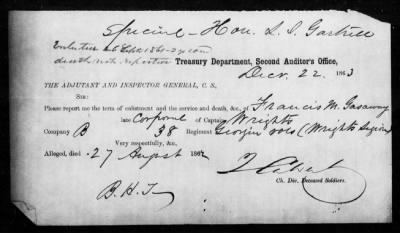 Special - Hon. L. J. Gartrell
Enlisted 26 Sept 1861 - 3 years
death not reported Treasury Department, Second Auditor's Office,
Decr. 22. 1863
THE ADJUTANT AND INSPECTOR GENERAL, C. S.,
SIR:
Please report me the term of enlistment and the service and death, &c., of Francis M. Gasaway
late Corporal of Captain Wrights
Company B 38 Regiment Georgia vols (Wrights Legion)
Very respectfully, &c.,
Alleged, died 27 August 1862
B. H. T.
Ch. Div. Deceased Soldiers.